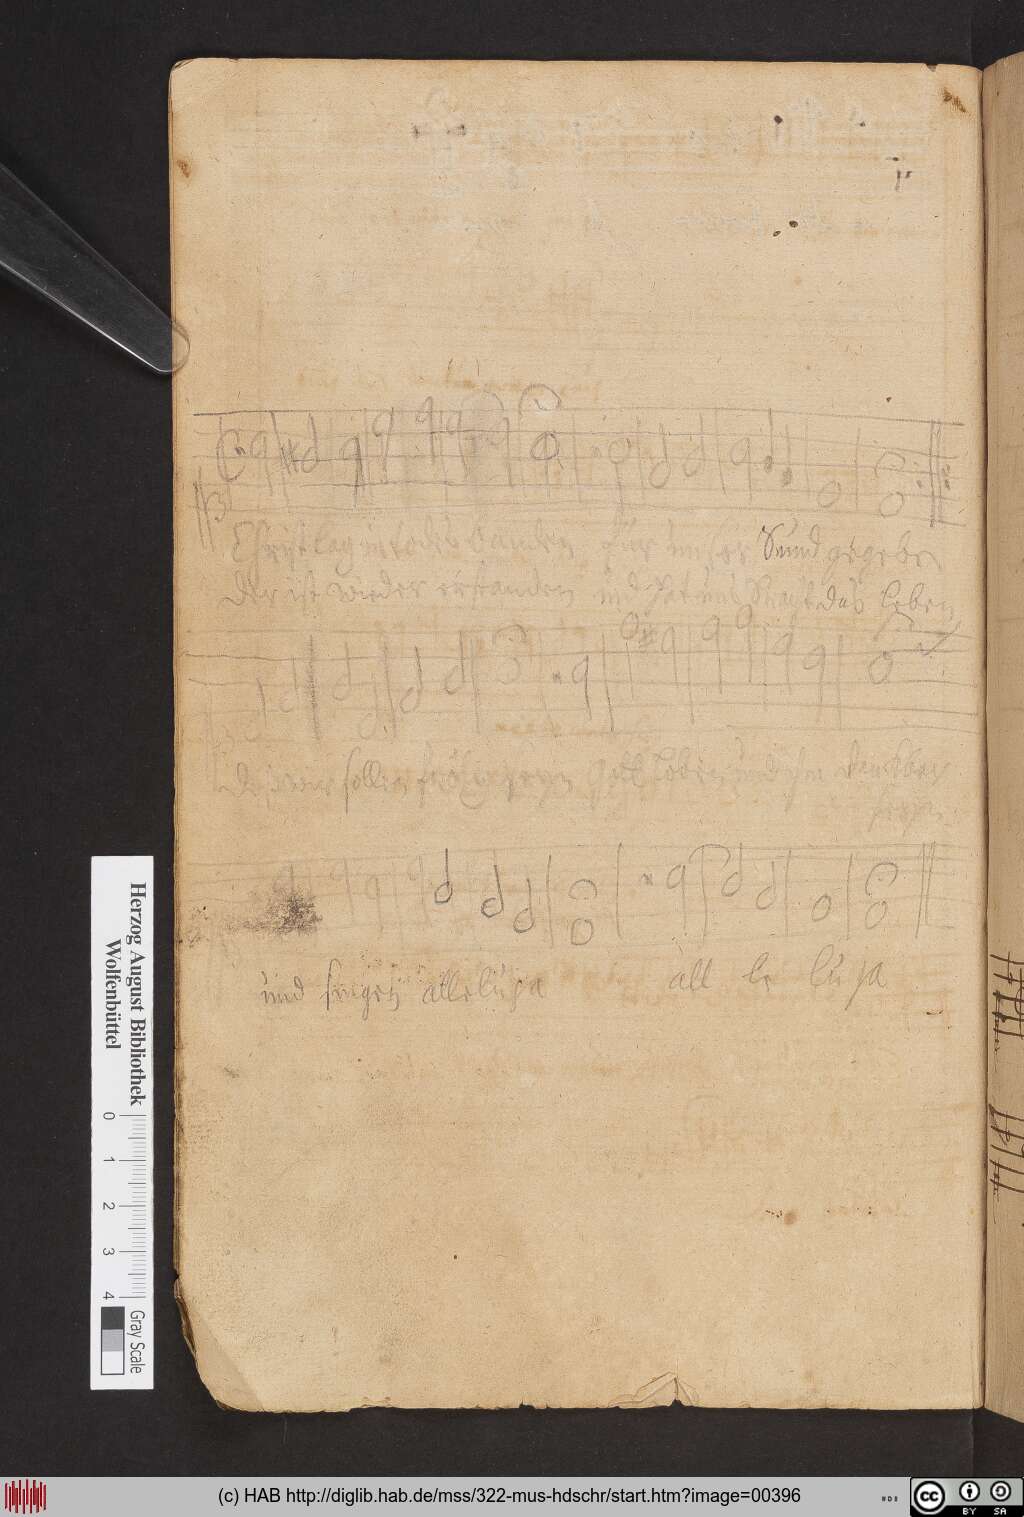 Christ lag in todes banden für unser Sünd gegeben
Der ist wieder erstanden und hat uns bracht das leben
Des wir sollen frölich seyn Gott loben und ihm danckbar
seyn
und singen alleluja all le lu ja
Herzog August Bibliothek
Wolfenbüttel
0 1 2 3 4
Gray Scale
(c) HAB http://diglib.hab.de/mss/322-mus-hdschr/start.htm?image=00396
cc
BY SA